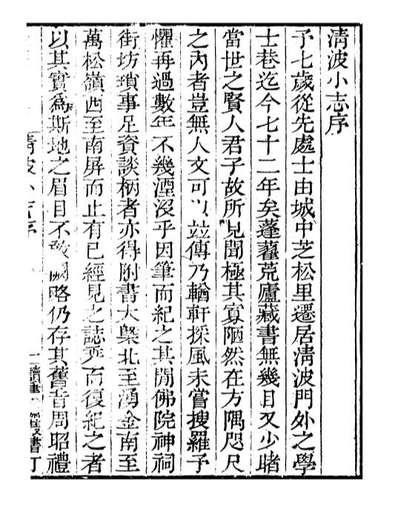 清波小志序
予七歲從先處士由城中芝松里遷居清波門外之學
士巷迄今七十二年矣蓬藋荒廬藏書無幾目又少睹
當世之賢人君子故所見聞極其寡陋然在方隅咫尺
之內者豈無人文可以並傳乃輶軒採風未嘗搜羅予
懼再過數年不幾湮沒乎因筆而紀之其閒佛院神祠
街坊瑣事足資談柄者亦得附書大槩北至湧金南至
萬松嶺西至南屏而止有已經見之誌乘而復紀之者
以其實爲斯地之眉目不敢闕略仍存其舊昔周昭禮
清波小志序